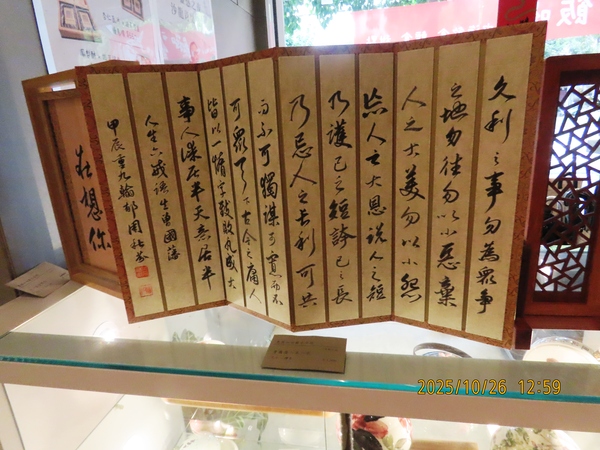 飯
久利之事勿為眾爭
之地勿往勿以小惡棄
人之大美勿以小怨
忘人之大恩說人之短
乃護己之短誇己之長
乃忌人之長利可共
而不可獨謀可寡而不
可眾天下古今之庸人
皆以一惰字致敗凡成大
事人謀在半天意居半
人生六戒語出曾國藩
甲辰重九
在想你
2025/10/26 12:59